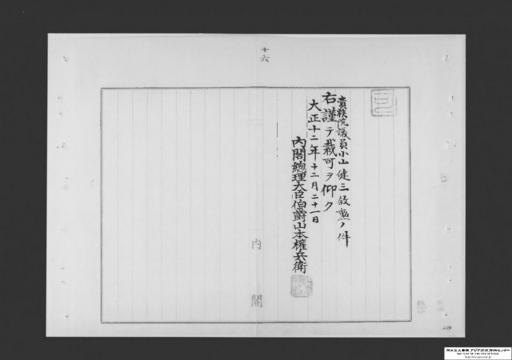 十六
貴族院議員小山健三敍勲ノ件
右謹テ裁可ヲ仰ク
大正十二年十二月二十一日
內閣總理大臣伯爵山本權兵衞
內閣